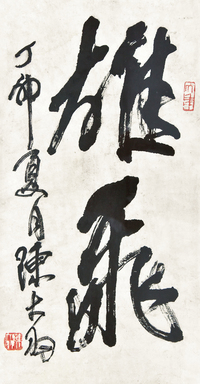 雄飛
丁卯夏月陳大羽